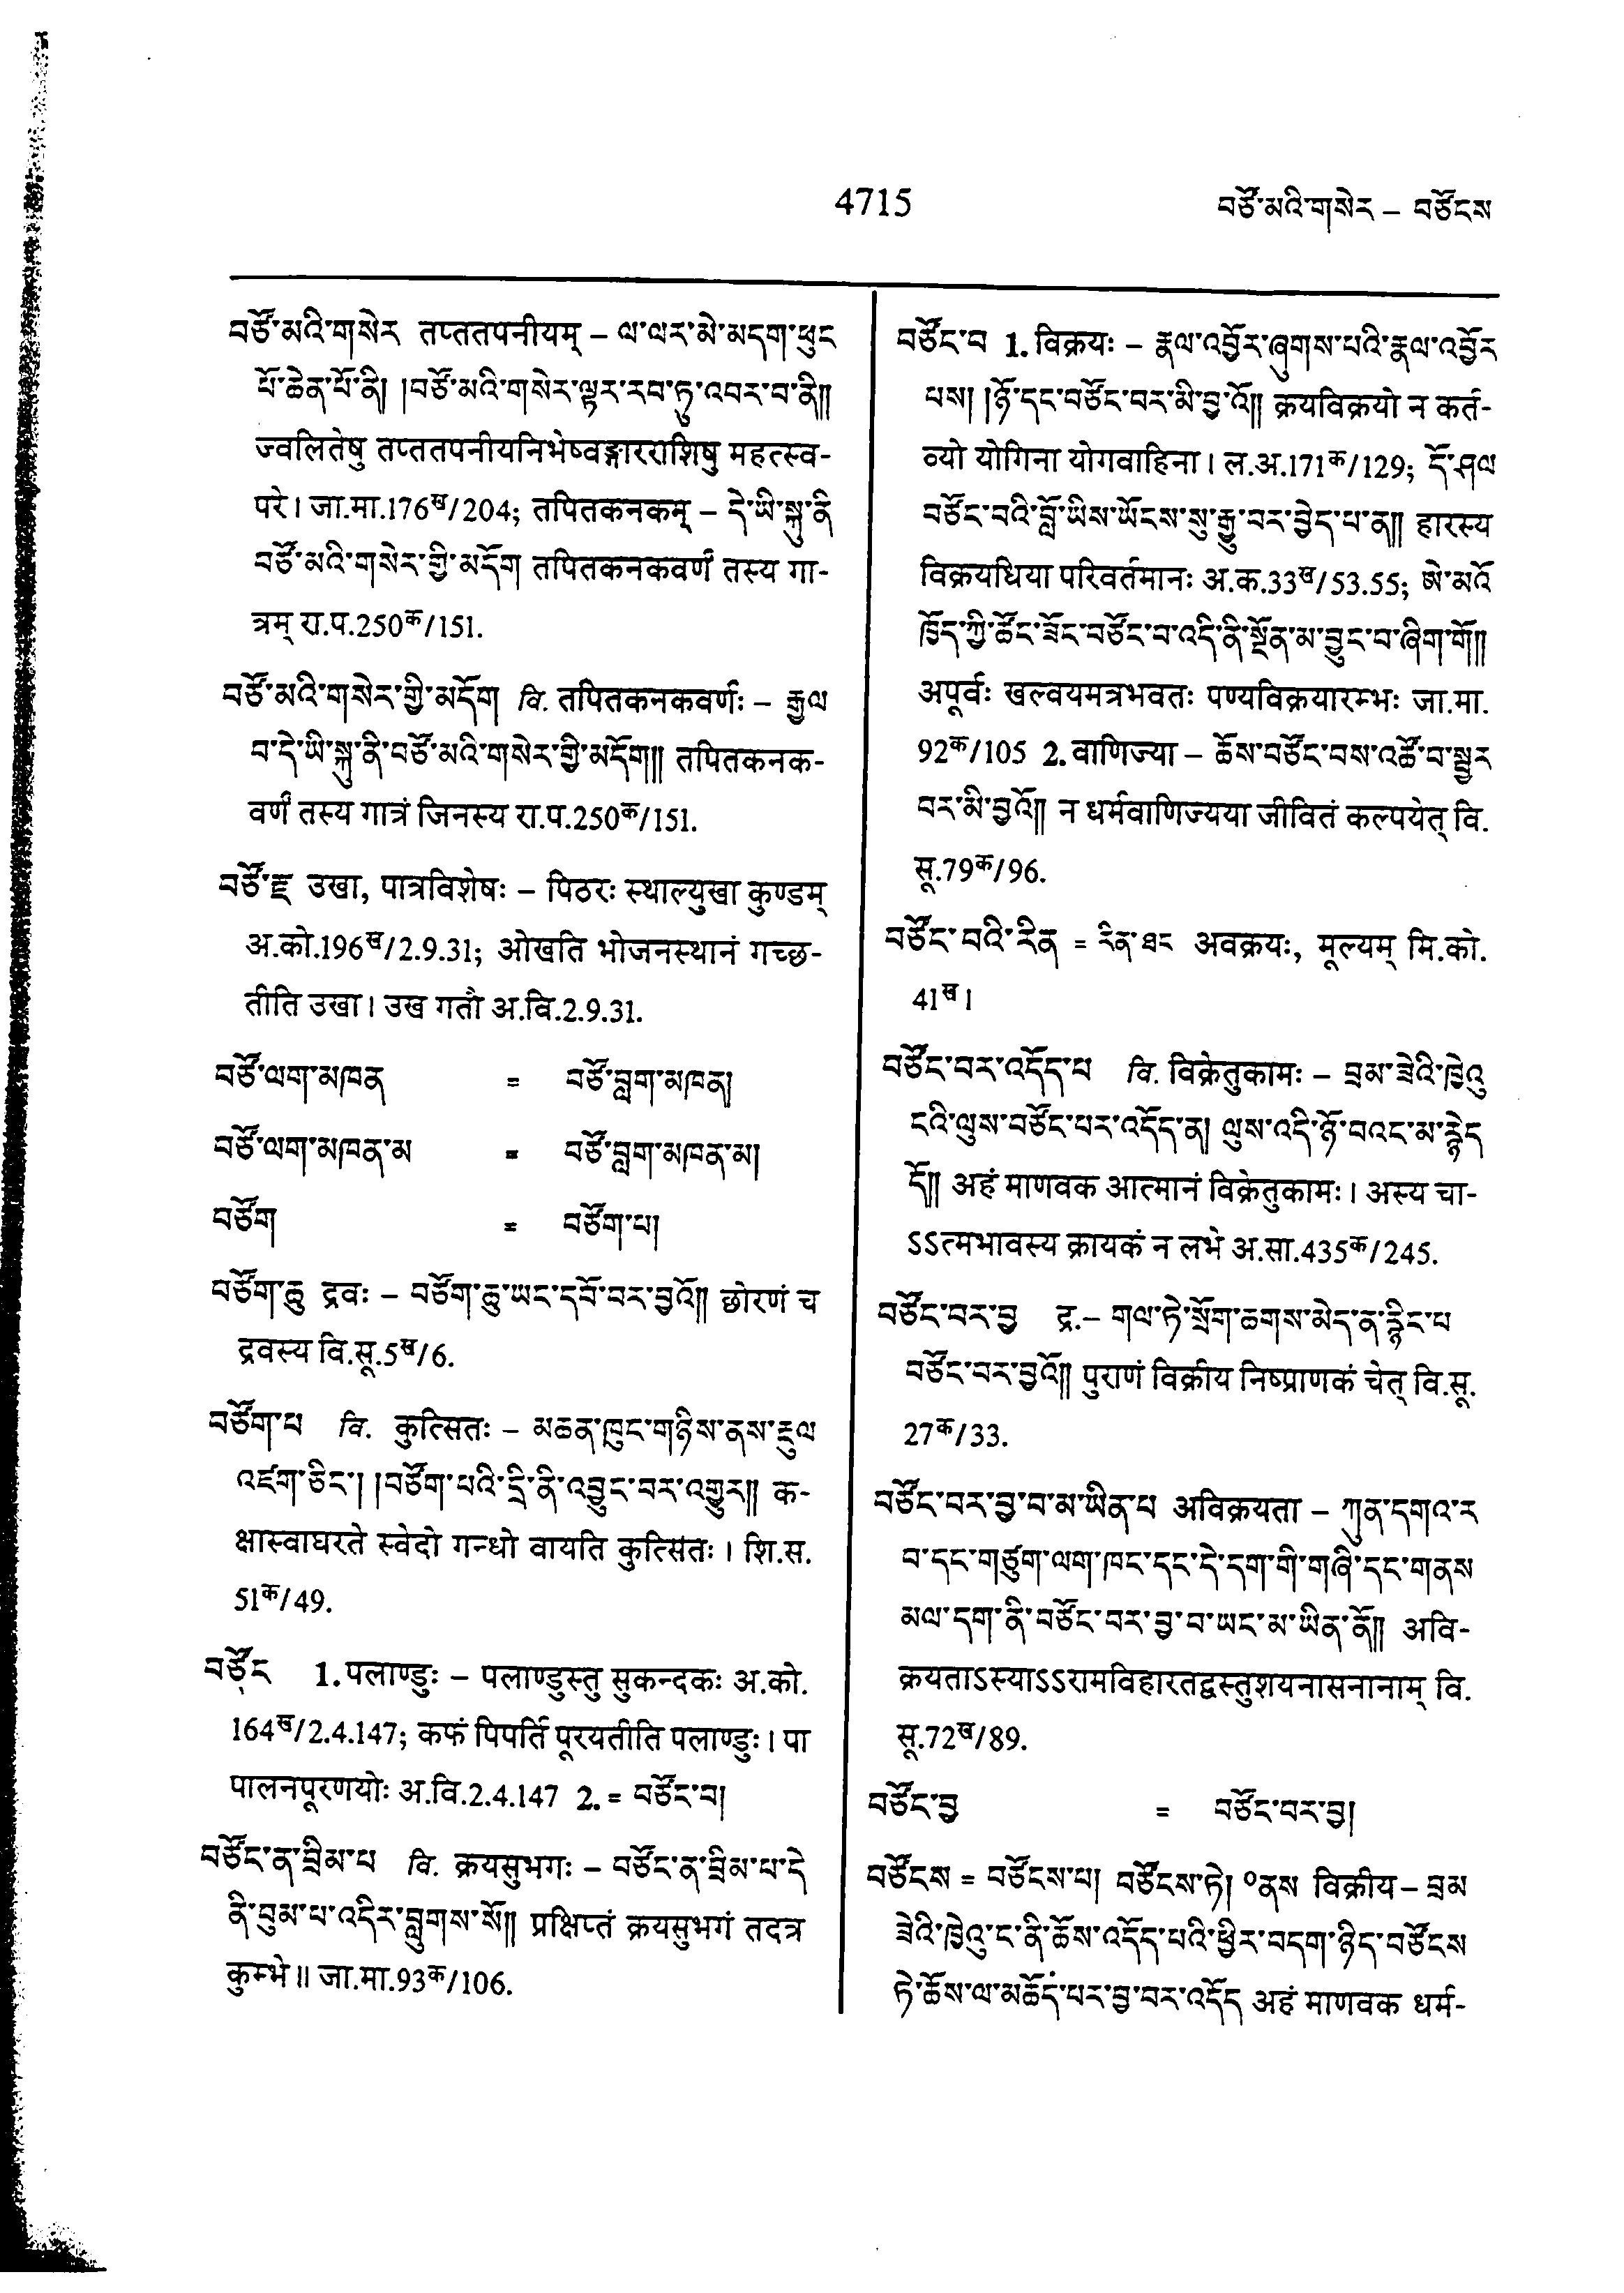 4715
བཙོ་མའི་གསེར – བཙོངས
བཙོ་མའི་གསེར तप्ततपनीयम् – ལ་ལར་མེ་མདག་ཕུང
པོ་ཆེན་པོ་ནི། །བཙོ་མའི་གསེར་ལྟར་རབ་ཏུ་འབར་བ་ནི༎
ज्वलितेषु तप्ततपनीयनिभेष्वङ्गारराशिषु महत्स्व-
परे। जा.मा.176ख/204; तपितकनकम् – དེ་ཡི་སྐུ་ནི
བཙོ་མའི་གསེར་གྱི་མདོག तपितकनकवर्णं तस्य गा-
त्रम् रा.प.250क/151.
བཙོ་མའི་གསེར་གྱི་མདོག वि. तपितकनकवर्णः – རྒྱལ
བ་དེ་ཡི་སྐུ་ནི་བཙོ་མའི་གསེར་གྱི་མདོག༎ तपितकनक-
वर्णं तस्य गात्रं जिनस्य रा.प.250क/151.
བཙོ་རྫ उखा, पात्रविशेषः – पिठरः स्थाल्युखा कुण्डम्
अ.को.196ख/2.9.31; ओखति भोजनस्थानं गच्छ-
तीति उखा। उख गतौ अ.वि.2.9.31.
བཙོ་ལག་མཁན = བཙོ་བླག་མཁན།
བཙོ་ལག་མཁན་མ = བཙོ་བླག་མཁན་མ།
བཙོག = བཙོག་པ།
བཙོག་ཆུ द्रवः – བཙོག་ཆུ་ཡང་དབོ་བར་བྱའོ༎ छोरणं च
द्रवस्य वि.सू.5ख/6.
བཙོག་པ वि. कुत्सितः – མཆན་ཁུང་གཉིས་ནས་རྡུལ
འཛག་ཅིང་། །བཙོག་པའི་དྲི་ནི་འབྱུང་བར་འགྱུར༎ क-
क्षास्वाघरते स्वेदो गन्धो वायति कुत्सितः। शि.स.
51क/49.
བཙོང 1. पलाण्डुः – पलाण्डुस्तु सुकन्दकः अ.को.
164ख/2.4.147; कफं पिपर्ति पूरयतीति पलाण्डुः। पा
पालनपूरणयोः अ.वि.2.4.147 2. = བཙོང་བ།
བཙོང་ན་བྲིམ་པ वि. क्रयसुभगः – བཙོང་ན་བྲིམ་པ་དེ
ནི་བུམ་པ་འདིར་བླུགས་སོ༎ प्रक्षिप्तं क्रयसुभगं तदत्र
कुम्भे॥ जा.मा.93क/106.
བཙོང་བ 1. विक्रयः – རྣལ་འབྱོར་ཞུགས་པའི་རྣལ་འབྱོར
པས། །ཉོ་དང་བཙོང་བར་མི་བྱ་འོ༎ क्रयविक्रयो न कर्त-
व्यो योगिना योगवाहिना। ल.अ.171क/129; དོ་ཤལ
བཙོང་བའི་བློ་ཡིས་ཡོངས་སུ་རྒྱུ་བར་བྱེད་པ་ན༎ हारस्य
विक्रयधिया परिवर्तमानः अ.क.33ख/53.55; ཨེ་མའོ
ཁྱོད་ཀྱི་ཚོང་ཟོང་བཙོང་བ་འདི་ནི་སྔོན་མ་བྱུང་བ་ཞིག་གོ༎
अपूर्वः खल्वयमत्रभवतः पण्यविक्रयारम्भः जा.मा.
92क/105 2. वाणिज्या – ཆོས་བཙོང་བས་འཚོ་བ་སྦྱར
བར་མི་བྱའོ༎ न धर्मवाणिज्यया जीवितं कल्पयेत् वि.
सू.79क/96.
བཙོང་བའི་རིན = རིན་ཐང अवक्रयः, मूल्यम् मि.को.
41ख।
བཙོང་བར་འདོད་པ वि. विक्रेतुकामः – བྲམ་ཟེའི་ཁྱེའུ
ངའི་ལུས་བཙོང་པར་འདོད་ན། ལུས་འདི་ཉོ་བའང་མ་རྙེད
དོ༎ अहं माणवक आत्मानं विक्रेतुकामः। अस्य चा-
ऽऽत्मभावस्य क्रायकं न लभे अ.सा.435क/245.
བཙོང་བར་བྱ द्र.– གལ་ཏེ་སྲོག་ཆགས་མེད་ན་རྙིང་པ
བཙོང་བར་བྱའོ༎ पुराणं विक्रीय निष्प्राणकं चेत् वि.सू.
27क/33.
བཙོང་བར་བྱ་བ་མ་ཡིན་པ अविक्रयता – ཀུན་དགའ་ར
བ་དང་གཙུག་ལག་ཁང་དང་དེ་དག་གི་གཞི་དང་གནས
མལ་དག་ནི་བཙོང་བར་བྱ་བ་ཡང་མ་ཡིན་ནོ༎ अवि-
क्रयताऽस्याऽऽरामविहारतद्वस्तुशयनासनानाम् वि.
सू.72ख/89.
བཙོང་བྱ = བཙོང་བར་བྱ།
བཙོངས = བཙོངས་པ། བཙོངས་ཏེ། ०ནས विक्रीय – བྲམ
ཟེའི་ཁྱེའུ་ང་ནི་ཆོས་འདོད་པའི་ཕྱིར་བདག་ཉིད་བཙོངས
ཏེ་ཆོས་ལ་མཆོད་པར་བྱ་བར་འདོད अहं माणवक धर्म-